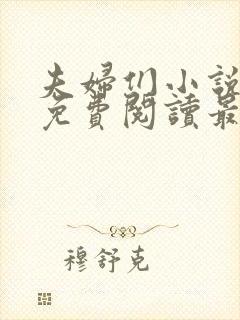 夫婦们小說
免費閱讀最
穆舒克